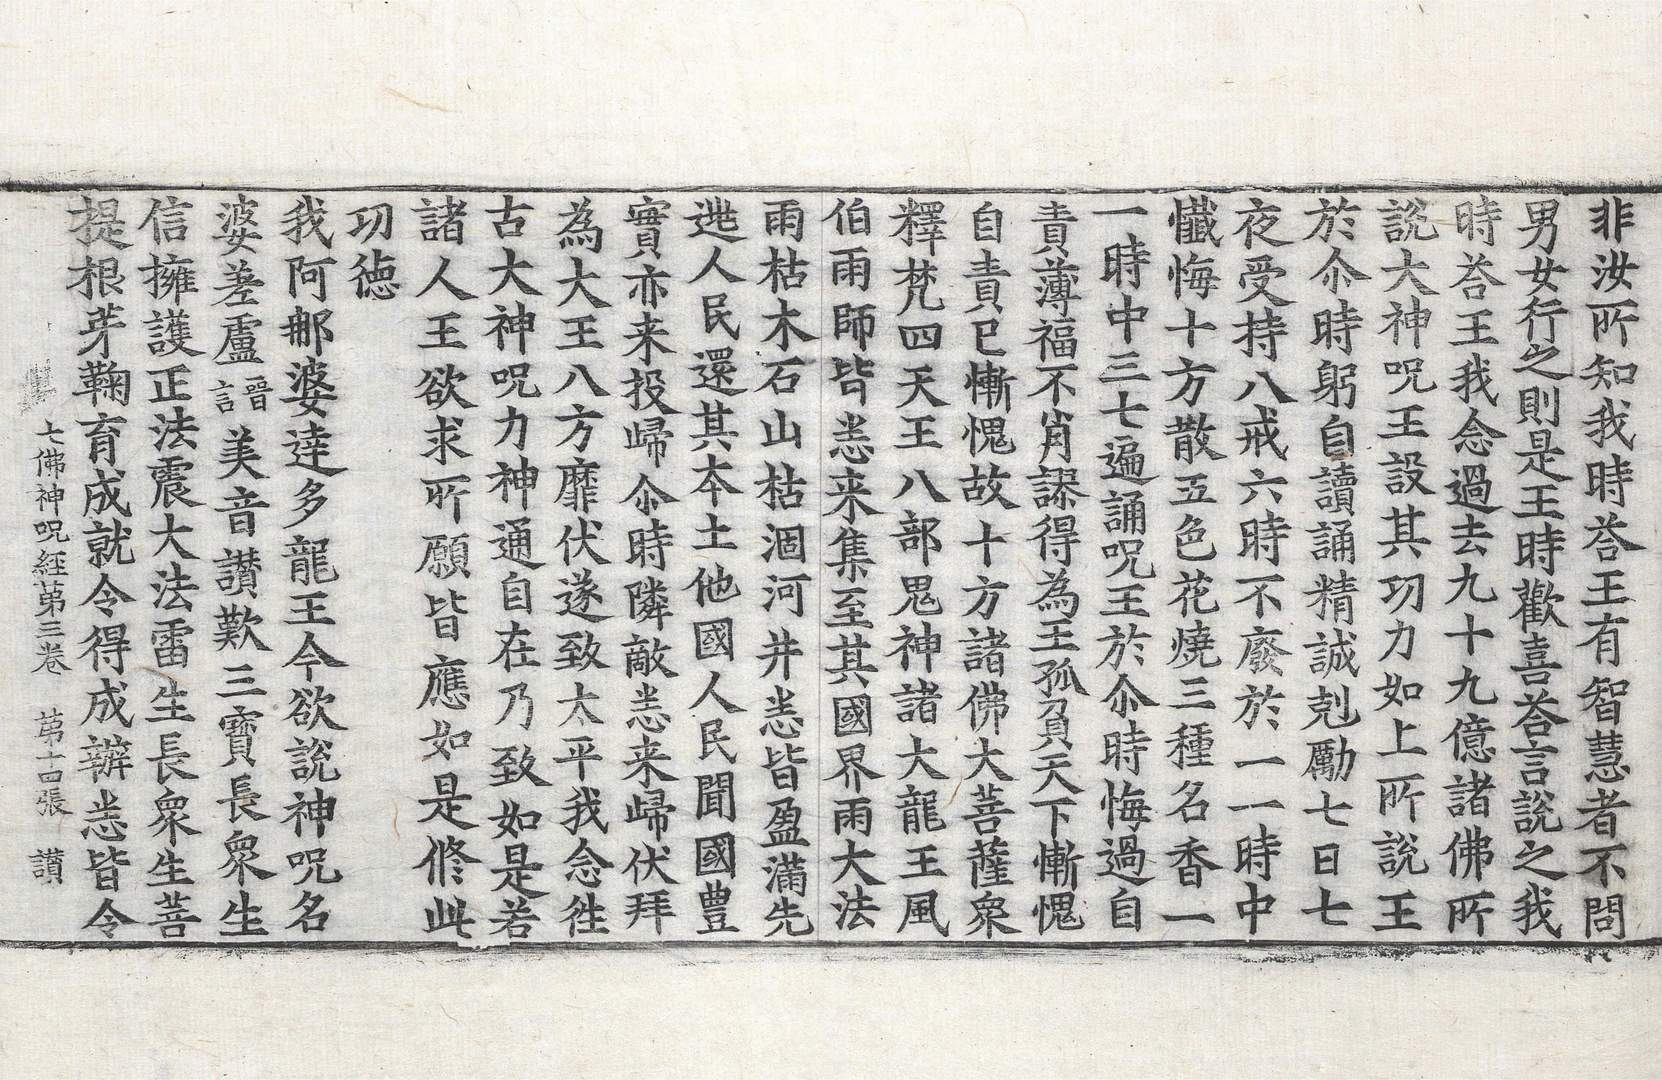 非汝所知我時荅王有智慧者不問
男女行之則是王時歡喜荅言說之我
時荅王我念過去九十九億諸佛所
說大神呪王設其功力如上所說王
於尒時躬自讀誦精誠剋勵七日七
夜受持八戒六時不廢於一一時中
懺悔十方散五色花燒三種名香一
一時中三七遍誦呪王於尒時悔過自
責薄福不肖謬得為王孤負天下慚愧
自責已慚愧故十方諸佛大菩薩衆
釋梵四天王八部鬼神諸大龍王風
伯雨師皆悉来集至其國界雨大法
雨枯木石山枯涸河井悉皆盈滿先
逃人民還其本土他國人民聞國豊
實亦来投歸尒時隣敵悉来歸伏拜
為大王八方靡伏遂致太平我念徃
古大神呪力神通自在乃致如是若
諸人王欲求所願皆應如是修此
功德
我阿郍婆達多龍王今欲說神呪名
婆差盧晉言美音讃歎三寶長衆生
信擁護正法震大法雷生長衆生菩
提根芽鞠育成就令得成辦悉皆令
七佛神呪經第三卷　第十四張　讃